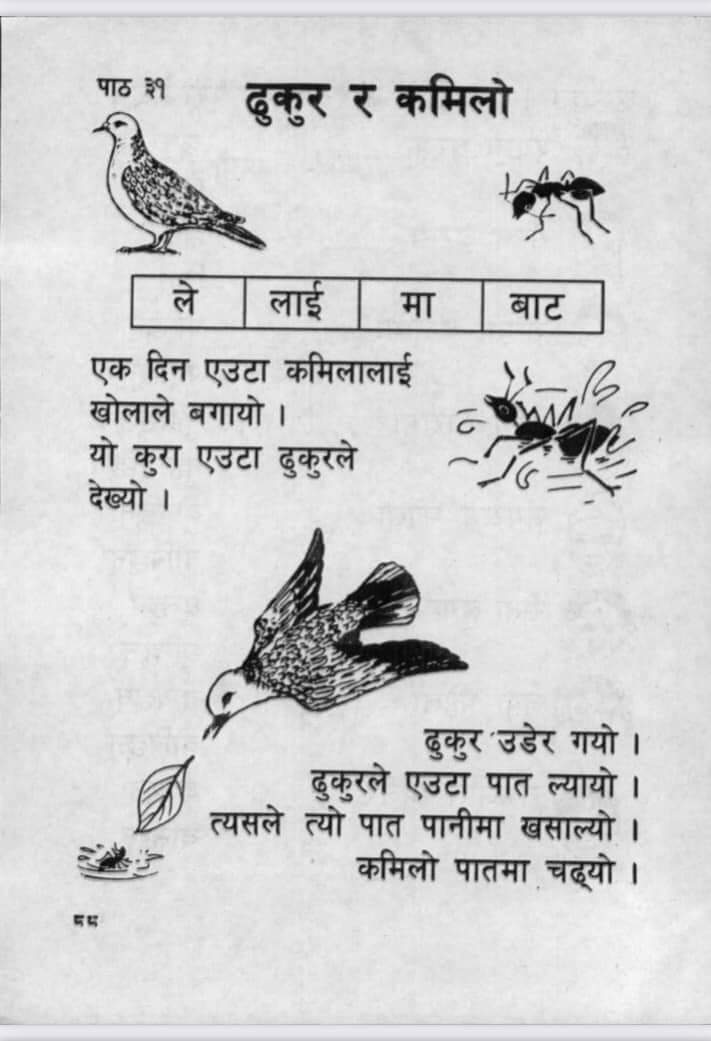 पाठ ३१
ढुकुर र कमिलो
ले लाई मा बाट
एक दिन एउटा कमिलालाई
खोलाले बगायो ।
यो कुरा एउटा ढुकुरले
देख्यो ।
ढुकुर उडेर गयो ।
ढुकुरले एउटा पात ल्यायो ।
त्यसले त्यो पात पानीमा खसाल्यो ।
कमिलो पातमा चढ्यो ।
८८